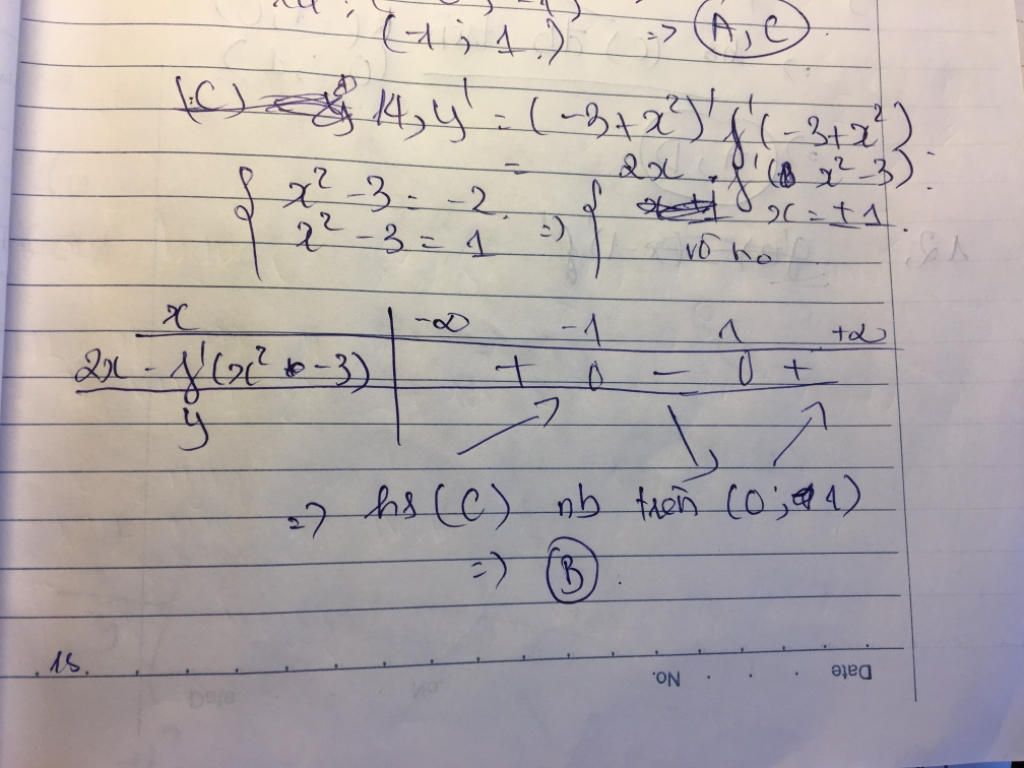 (-1; 1) => (A, C)
(C) 14, y' = (-3+x²)' f'(-3+x²)
= 2x . f'(x²-3)
{ x² - 3 = -2 => { x = ±1
x² - 3 = 1 vô no
x -∞ -1 1 +∞
2x - f'(x² - 3) + 0 - 0 +
y
=> hs (C) nb trên (0; 1)
=> (B)
15.
Date No.